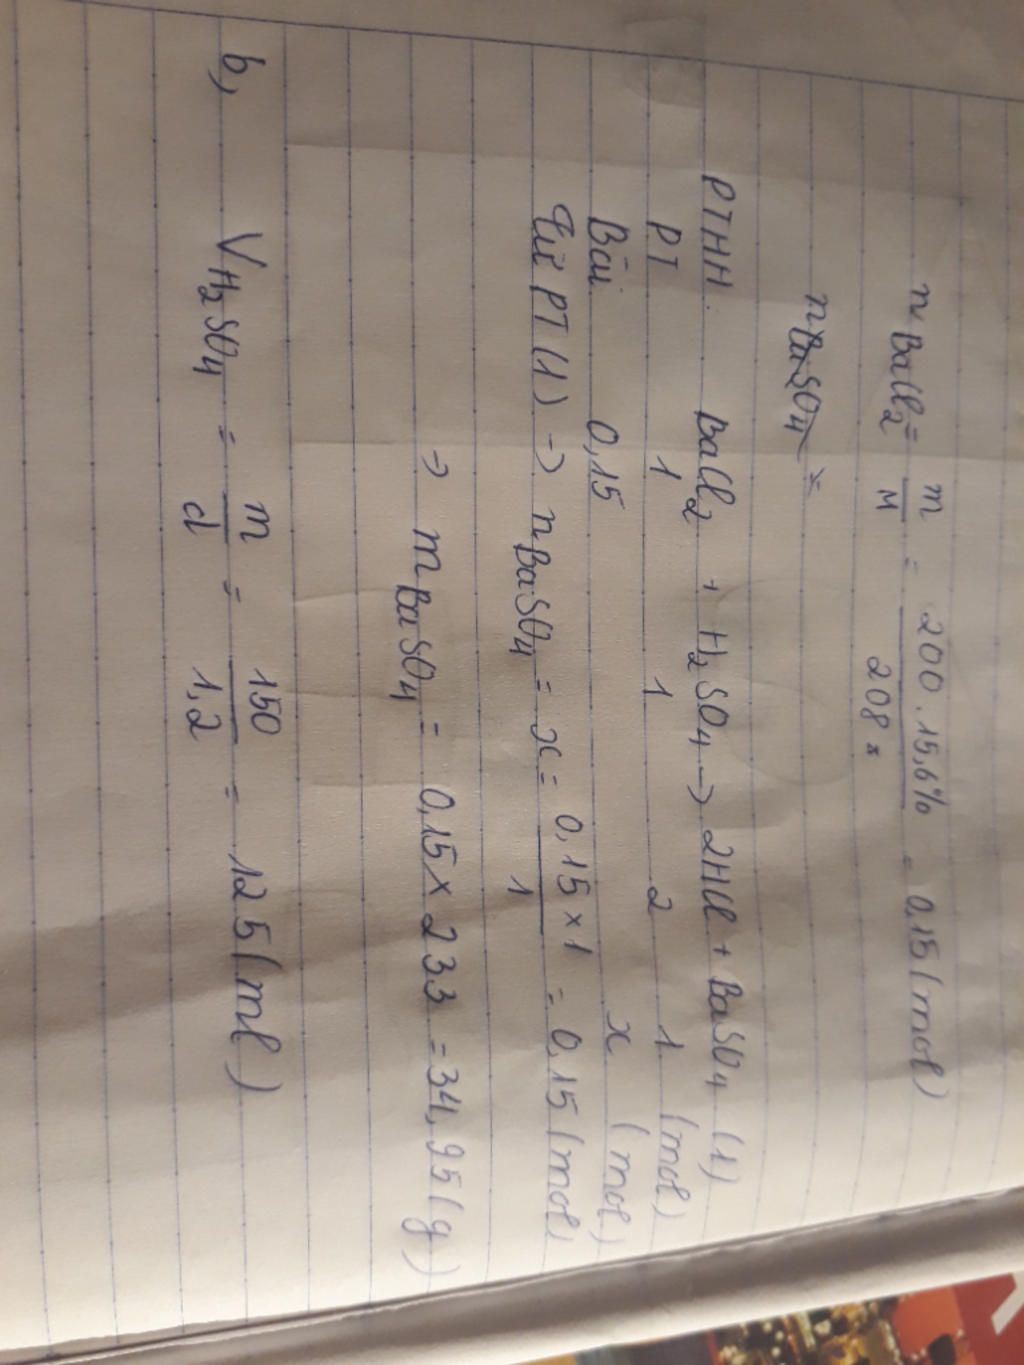 nBaCl2 = m/M = 200.15,6%/208 = 0,15 (mol)
nBaSO4 =
PTHH: BaCl2 + H2SO4 → 2HCl + BaSO4 (1)
PT 1 1 2 1 (mol)
Bài 0,15 x (mol)
Từ PT (1) → nBaSO4 = x = 0,15×1/1 = 0,15 (mol)
→ mBaSO4 = 0,15×233 = 34,95 (g)
b, VH2SO4 = m/d = 150/1,2 = 125 (ml)